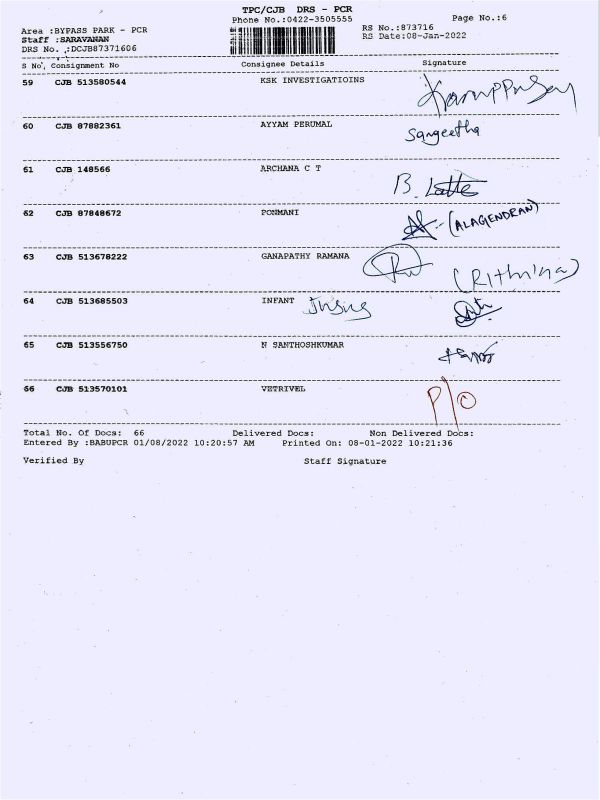 TPC/CJB DRS - PCR
Phone No.:0422-3505555 Page No.:6
Area :BYPASS PARK - PCR RS No.:873716
Staff :SARAVANAN RS Date:08-Jan-2022
DRS No. :DCJB87371606
S No. Consignment No Consignee Details Signature
59 CJB 513580544 KSK INVESTIGATIOINS
60 CJB 87882361 AYYAM PERUMAL Sangeetha
61 CJB 148566 ARCHANA C T B. Latte
62 CJB 87848672 PONMANI (ALAGENDRAN)
63 CJB 513678222 GANAPATHY RAMANA (Rithnina)
64 CJB 513685503 INFANT
65 CJB 513556750 N SANTHOSHKUMAR
66 CJB 513570101 VETRIVEL P/C
Total No. Of Docs: 66 Delivered Docs: Non Delivered Docs:
Entered By :BABUPCR 01/08/2022 10:20:57 AM Printed On: 08-01-2022 10:21:36
Verified By Staff Signature